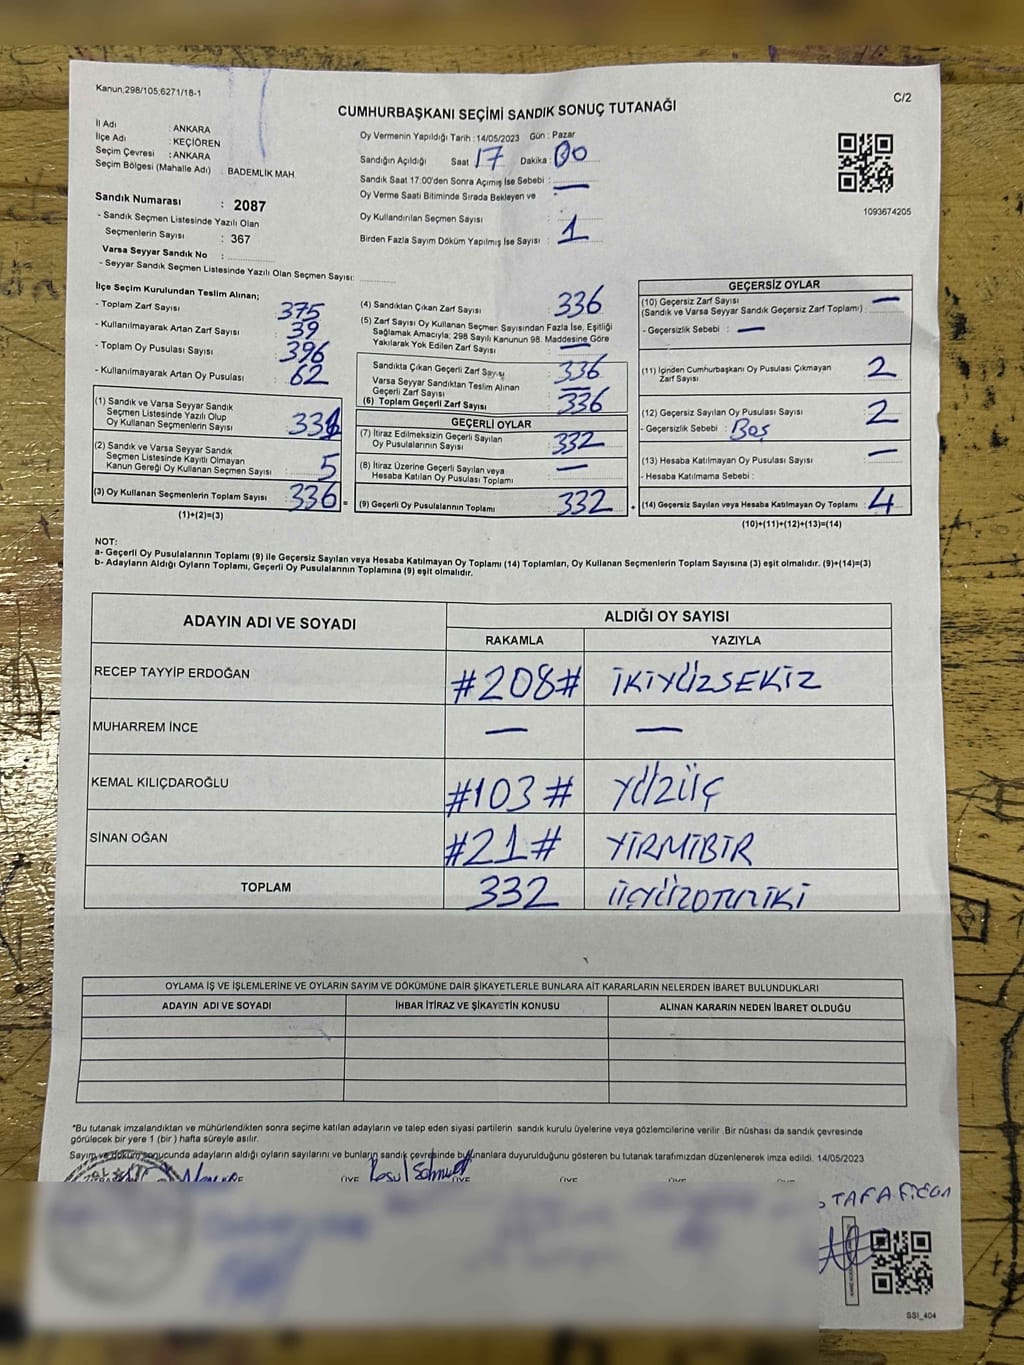 Kanun;298/105,6271/18-1
C/2
CUMHURBAŞKANI SEÇİMİ SANDIK SONUÇ TUTANAĞI
İl Adı : ANKARA
İlçe Adı : KEÇİÖREN
Seçim Çevresi : ANKARA
Seçim Bölgesi (Mahalle Adı) : BADEMLİK MAH
Sandık Numarası : 2087
- Sandık Seçmen Listesinde Yazılı Olan
Seçmenlerin Sayısı : 367
Varsa Seyyar Sandık No :
- Seyyar Sandık Seçmen Listesinde Yazılı Olan Seçmen Sayısı:
Oy Vermenin Yapıldığı Tarih : 14/05/2023 Gün : Pazar
Sandığın Açıldığı Saat 17 Dakika : 00
Sandık Saat 17:00'den Sonra Açımış İse Sebebi : —
Oy Verme Saati Bitiminde Sırada Bekleyen ve
Oy Kullandırılan Seçmen Sayısı : —
Birden Fazla Sayım Döküm Yapılmış İse Sayısı : 1
1093674205
İlçe Seçim Kurulundan Teslim Alınan;
- Toplam Zarf Sayısı : 375
- Kullanılmayarak Artan Zarf Sayısı : 39
- Toplam Oy Pusulası Sayısı : 396
- Kullanılmayarak Artan Oy Pusulası : 62
(1) Sandık ve Varsa Seyyar Sandık
Seçmen Listesinde Yazılı Olup
Oy Kullanan Seçmenlerin Sayısı :
(2) Sandık ve Varsa Seyyar Sandık
Seçmen Listesinde Kayıtlı Olmayan
Kanun Gereği Oy Kullanan Seçmen Sayısı : 5
(3) Oy Kullanan Seçmenlerin Toplam Sayısı : 336 =
(1)+(2)=(3)
(4) Sandıktan Çıkan Zarf Sayısı : 336
(5) Zarf Sayısı Oy Kullanan Seçmen Sayısından Fazla İse, Eşitliği
Sağlamak Amacıyla; 298 Sayılı Kanunun 98. Maddesine Göre
Yakılarak Yok Edilen Zarf Sayısı : —
Sandıkta Çıkan Geçerli Zarf Sayısı : 336
Varsa Seyyar Sandıktan Teslim Alınan
Geçerli Zarf Sayısı : —
(6) Toplam Geçerli Zarf Sayısı : 336
GEÇERLİ OYLAR
(7) İtiraz Edilmeksizin Geçerli Sayılan
Oy Pusulalarının Sayısı : 332
(8) İtiraz Üzerine Geçerli Sayılan veya
Hesaba Katılan Oy Pusulası Toplamı : —
(9) Geçerli Oy Pusulalarının Toplamı : 332 +
GEÇERSİZ OYLAR
(10) Geçersiz Zarf Sayısı : —
(Sandık ve Varsa Seyyar Sandık Geçersiz Zarf Toplamı)
- Geçersizlik Sebebi : —
(11) İçinden Cumhurbaşkanı Oy Pusulası Çıkmayan
Zarf Sayısı : 2
(12) Geçersiz Sayılan Oy Pusulası Sayısı : 2
- Geçersizlik Sebebi : Boş
(13) Hesaba Katılmayan Oy Pusulası Sayısı : —
- Hesaba Katılmama Sebebi :
(14) Geçersiz Sayılan veya Hesaba Katılmayan Oy Toplamı : 4
(10)+(11)+(12)+(13)=(14)
NOT:
a- Geçerli Oy Pusulalarının Toplamı (9) ile Geçersiz Sayılan veya Hesaba Katılmayan Oy Toplamı (14) Toplamları, Oy Kullanan Seçmenlerin Toplam Sayısına (3) eşit olmalıdır. (9)+(14)=(3)
b- Adayların Aldığı Oyların Toplamı, Geçerli Oy Pusulalarının Toplamına (9) eşit olmalıdır.
ADAYIN ADI VE SOYADI ALDIĞI OY SAYISI
RAKAMLA YAZIYLA
RECEP TAYYİP ERDOĞAN #208# İKİYÜZSEKİZ
MUHARREM İNCE — —
KEMAL KILIÇDAROĞLU #103# YÜZÜÇ
SİNAN OĞAN #21# YİRMİBİR
TOPLAM 332 ÜÇYÜZOTUZİKİ
OYLAMA İŞ VE İŞLEMLERİNE VE OYLARIN SAYIM VE DÖKÜMÜNE DAİR ŞİKAYETLERLE BUNLARA AİT KARARLARIN NELERDEN İBARET BULUNDUKLARI
ADAYIN ADI VE SOYADI İHBAR İTİRAZ VE ŞİKAYETİN KONUSU ALINAN KARARIN NEDEN İBARET OLDUĞU
*Bu tutanak imzalandıktan ve mühürlendikten sonra seçime katılan adayların ve talep eden siyasi partilerin sandık kurulu üyelerine veya gözlemcilerine verilir .Bir nüshası da sandık çevresinde
görülecek bir yere 1 (bir ) hafta süreyle asılır.
Sayım ve döküm sonucunda adayların aldığı oyların sayılarını ve bunların sandık çevresinde bulunanlara duyurulduğunu gösteren bu tutanak tarafımızdan düzenlenerek imza edildi. 14/05/2023
ÜYE ÜYE ÜYE ÜYE
SSİ_404